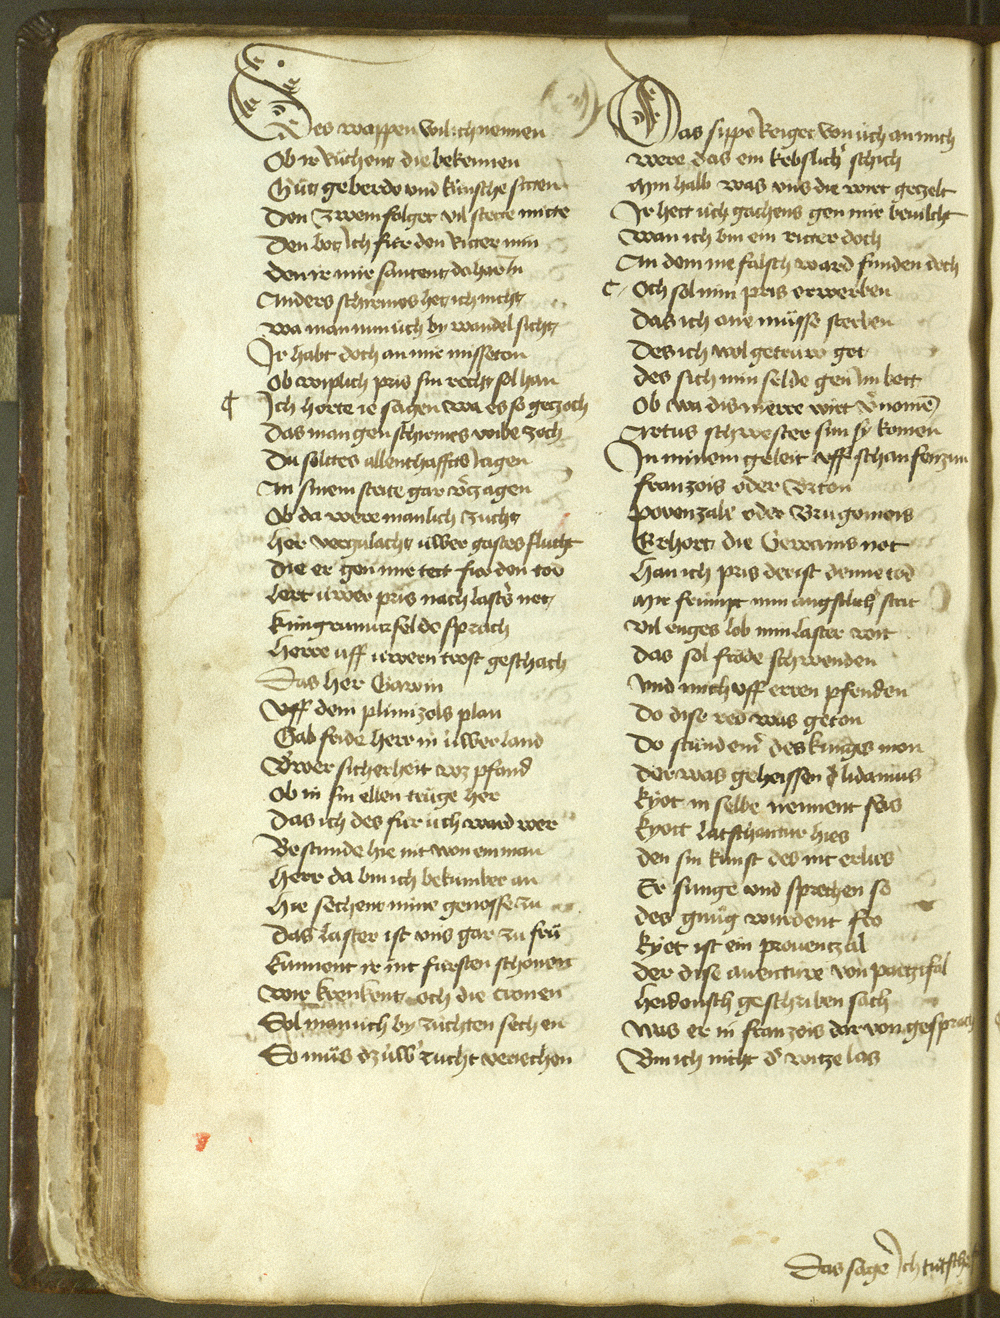 Des wappen wil ich nennen
Ob ir rüchent die bekennen
Gütz geberde vnd künsche sitten
Den zwein folget vil stete mitte
Den bot Ich für den ritter min
den ir mir santent do har In
Anders schirmes het ich nicht
wa man nun üch by wandel sicht
Ir habt doch an mir misseton
Ob wiplich pris sin recht sol han
Ich horte ie sagen wa es so gezoch
Das man gen schirmes wibe zoch
Do soltes ellenthafftes Iagen
An sinem strite gar v'zagen
Ob da were manlich zucht
Her vergulacht uwer gastes flucht
Die er gen mir tett für den tod
Lert uwer pris noch last's not
kingrimursel do sprach
Herre uff uwern trost geschach
Das her Gawin
Vff dem plimizols plan
Gab fride herr in uwer land
Vwer sicherheit wz pfand
Ob in sin ellen trüge her
Das ich des für üch ward wer
Bestunde hie nit won ein man
Herr da bin ich bekumber an
Hie sechent mine genosse zu
Das laster ist vns gar zu frü
kunnent ir nit fürsten schonen
wir krenkent och die cronen
Sol man üch by züchten sechen
So müs dz üw' zucht veriechen
Das sippe reiget von üch an mich
were das ein kebslich' schich
Min halb was vns die wirt gezelt
Ir hett üch gachens gen mir
Wan ich bin ein ritter doch
An dem nie falsch ward funden doch
Och sol min pris erwerben
Das ich ane müsse sterben
Des ich wol getruw got
des sich min selde gen Im bett
Ob wa dis merre wirt v'nomē
Artus schwester sun sy komen
In minem geleit vff schanfenzun
franzois oder Briton
Povenzale oder Brugonois
Erhort die Gewains not
Han ich pris der ist denne tod
Mir frumpt min angstlich' strit
Vil enges lob min laster wit
Das sol fröde schwenden
Vnd mich vff erren pfenden
Do dise red was geton
Do stund ein' des kunges mon
Der was geheissen lidamus
kyot in selbe nennent sus
kyott latschantur hies
den sin kunst des nit erlies
Er sunge vnd sprechen so
des gnüg wurdent fro
kyot ist ein provenzal
Der dise auenture von parzifal
heidensch geschriben sach
Was er in franzois dar von gesprach
Bin ich nicht d' witze las
Das sage Ich tütsche